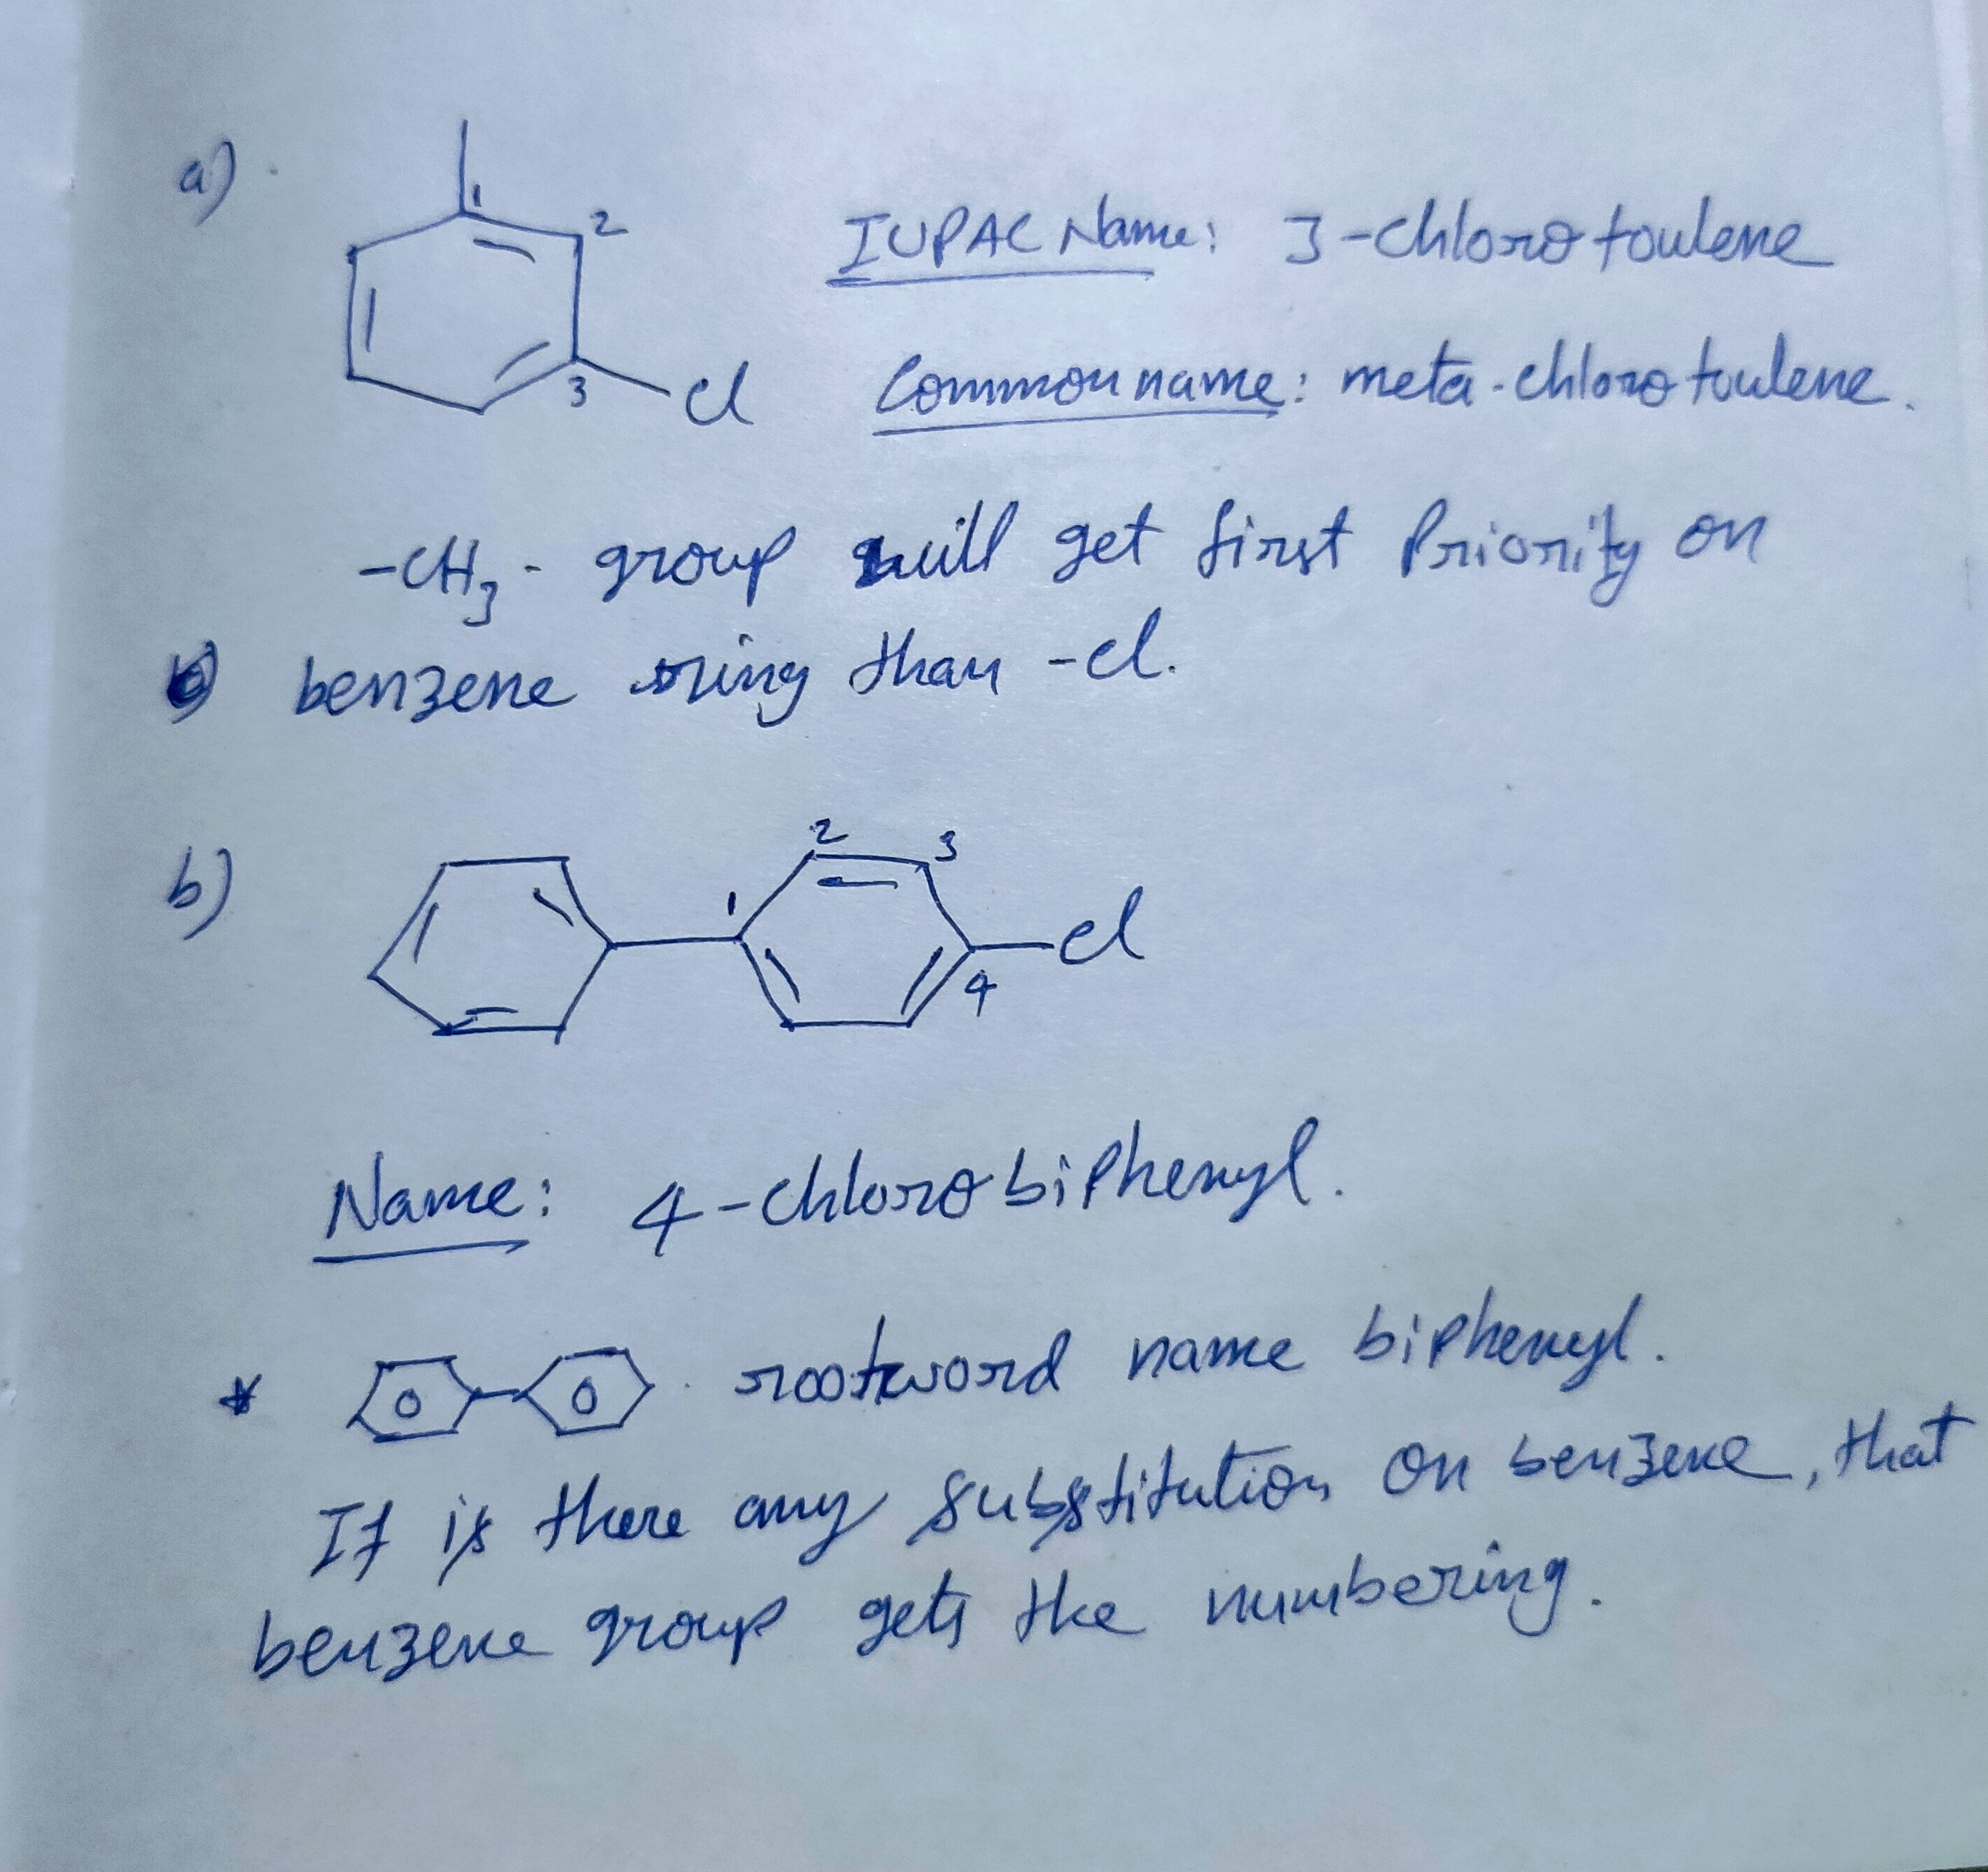 a)
1
2
3
Cl
IUPAC Name: 3-chloro toulene
Common name: meta-chloro toulene.
-CH3- group will get first Priority on
benzene ring than -cl.
b)
1
2
3
4
cl
Name: 4-chloro biphenyl.
* rootword name biphenyl.
If is there any substitution on benzene, that
benzene group gets the numbering.